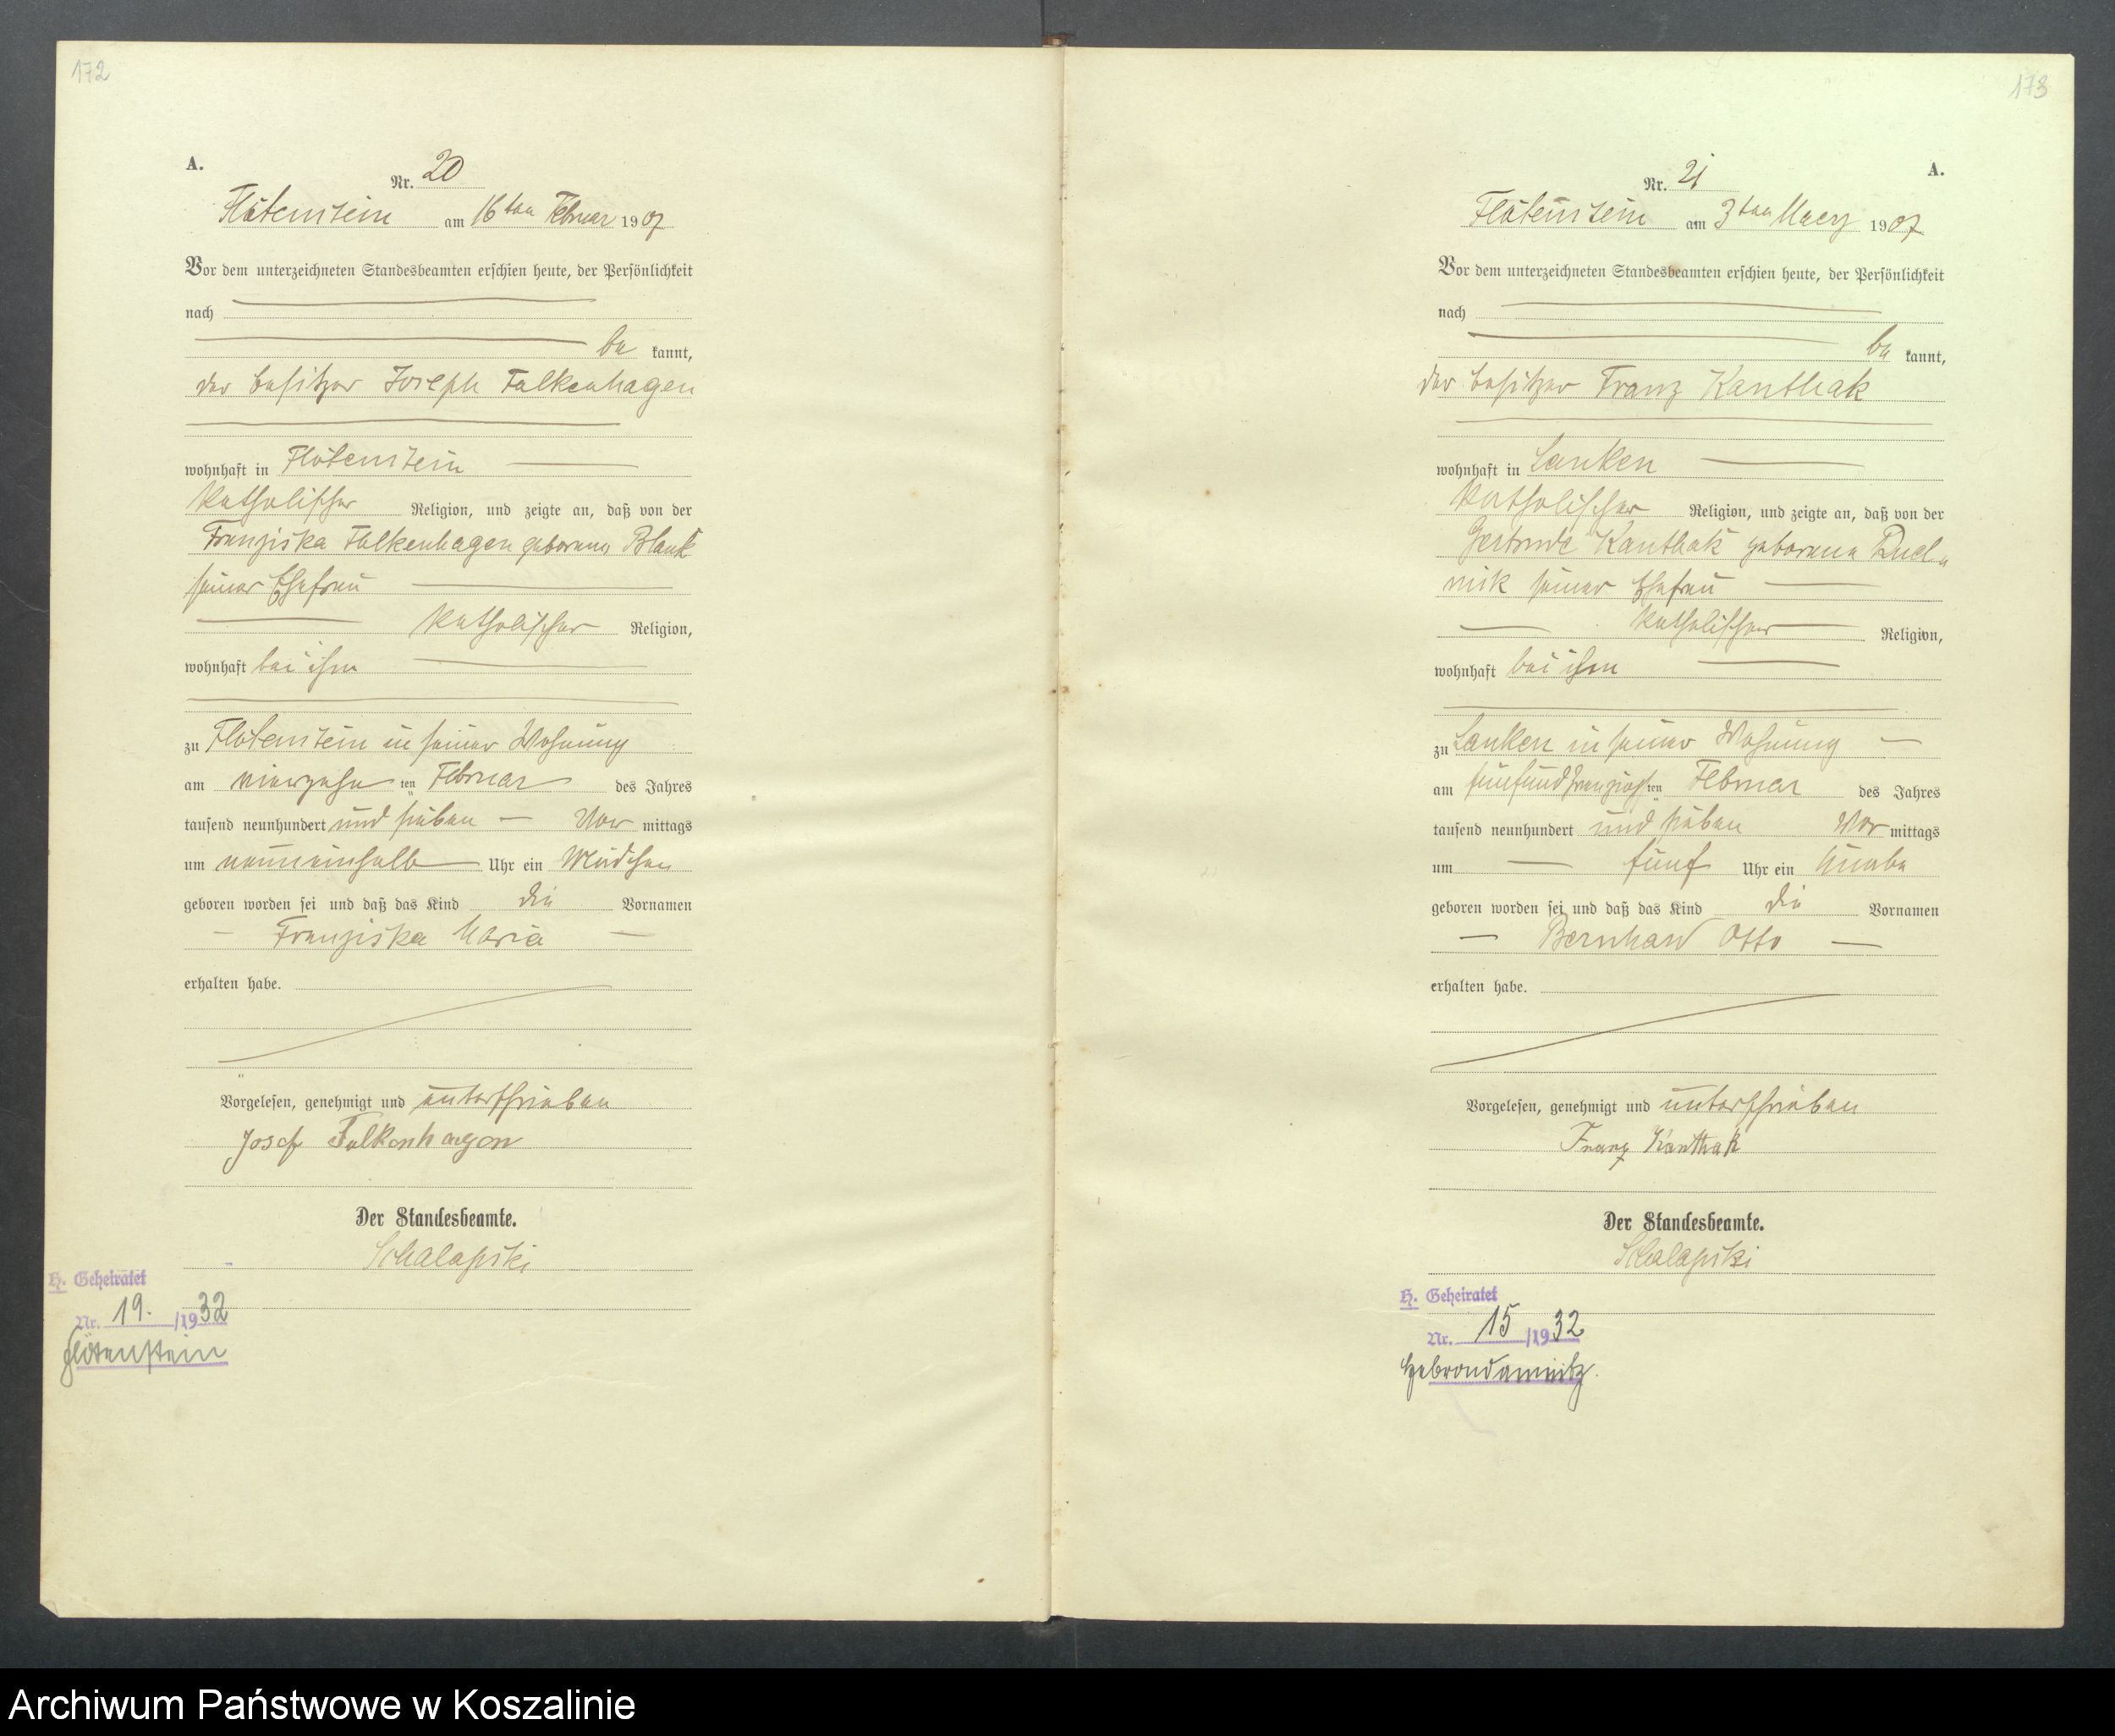 172
A.
Nr. 20
Flötenstein am 16ten Februar 1907
Vor dem unterzeichneten Standesbeamten erschien heute, der Persönlichkeit
nach
be kannt,
der Besitzer Joseph Falkenhagen
wohnhaft in Flötenstein
katholischer Religion, und zeigte an, daß von der
Franziska Falkenhagen geborene Blank
seiner Ehefrau
katholischer Religion,
wohnhaft bei ihm
zu Flötenstein in seiner Wohnung
am vierzehn ten Februar des Jahres
tausend neunhundert und sieben Vor mittags
um neuneinhalb Uhr ein Mädchen
geboren worden sei und daß das Kind die Vornamen
Franziska Maria
erhalten habe.
Vorgelesen, genehmigt und unterschrieben
Josef Falkenhagen
Der Standesbeamte.
Schalapski
H. Geheiratet
Nr. 19. /1932
Flötenstein
173
A.
Nr. 21
Flötenstein am 3ten Maerz 1907
Vor dem unterzeichneten Standesbeamten erschien heute, der Persönlichkeit
nach
be kannt,
der Besitzer Franz Kanthak
wohnhaft in Lanken
katholischer Religion, und zeigte an, daß von der
Gertrude Kanthak geborene
seiner Ehefrau
katholischer Religion,
wohnhaft bei ihm
zu Lanken in seiner Wohnung
am fünfundzwanzigsten Februar des Jahres
tausend neunhundert und sieben Vor mittags
um fünf Uhr ein Knabe
geboren worden sei und daß das Kind die Vornamen
Bernhard Otto
erhalten habe.
Vorgelesen, genehmigt und unterschrieben
Franz Kanthak
Der Standesbeamte.
Schalapski
H. Geheiratet
Nr. 15 /1932
Hebrondamnitz.
Archiwum Państwowe w Koszalinie